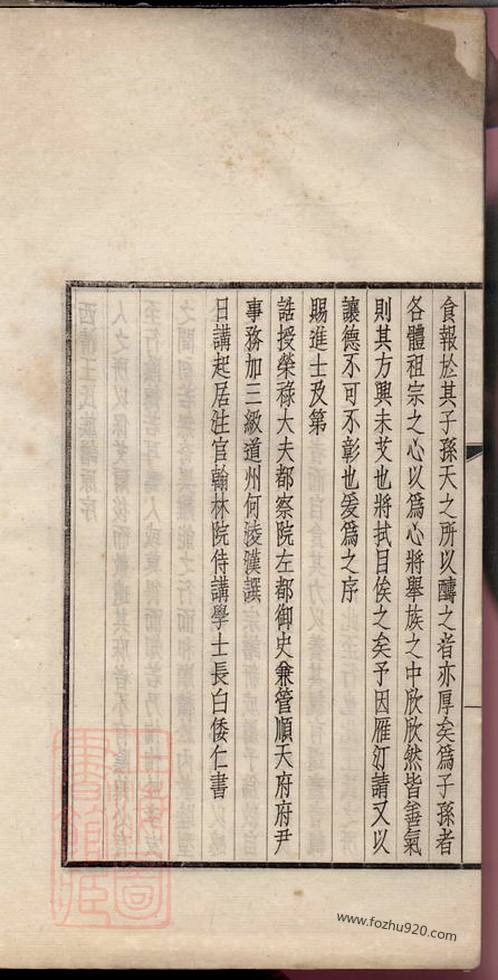 食報於其子孫天之所以酬之者亦厚矣爲子孫者
各體祖宗之心以爲心將舉族之中欣欣然皆善氣
則其方興未艾也將拭目俟之矣予因雁汀請又以
讓德不可不彰也爰爲之序
賜進士及第
誥授榮祿大夫都察院左都御史兼管順天府府尹
事務加三級道州何淩漢譔
日講起居注官翰林院侍講學士長白倭仁書
www.fozhu920.com